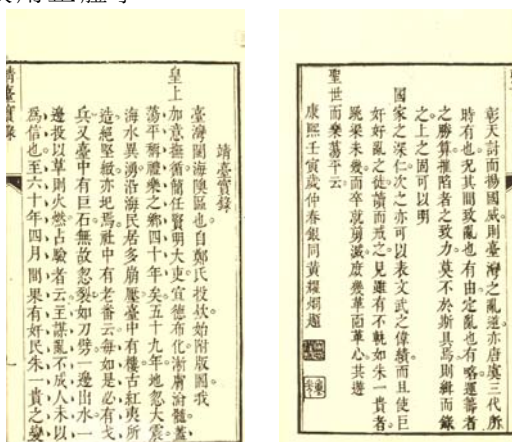 彰天討而揚國威則臺灣之亂適亦唐虞三代所
時有也況其間致亂也有由定亂也有略運籌者
之勝算摧陷者之致力莫不於斯具焉則緝而錄
之上之固可以明
國家之深仁次之亦可以表文武之偉績而且使巨
奸好亂之徒讀而戒之見雖有不軌如朱一貴者
跳梁未幾而卒就剪滅庶幾革面革心共遵
聖世而樂蕩平云
康熙壬寅歲仲春銀同黃耀炯題
靖臺實錄
臺灣閩海隩區也自鄭氏投欵始附版圖我
皇上加意撫循簡任賢明大吏宣德布化漸膚淪髓蓋
蕩平稱禮樂之鄉四十年矣五十九年地忽大震
海水異湧沿海民居多崩壓臺中有樓古紅夷所
造絕堅緻亦圮焉社中有老番云每如是必有戈
兵又臺中有巨石無故忽裂如刀劈一邊出水一
邊投以草則火燃占驗者云主謀亂不成人未以
爲信也至六十年四月間果有奸民朱一貴之變
靖臺實錄